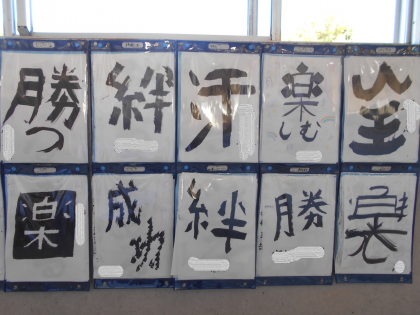 勝つ
絆
汗
楽しむ
楽
成功
絆
勝